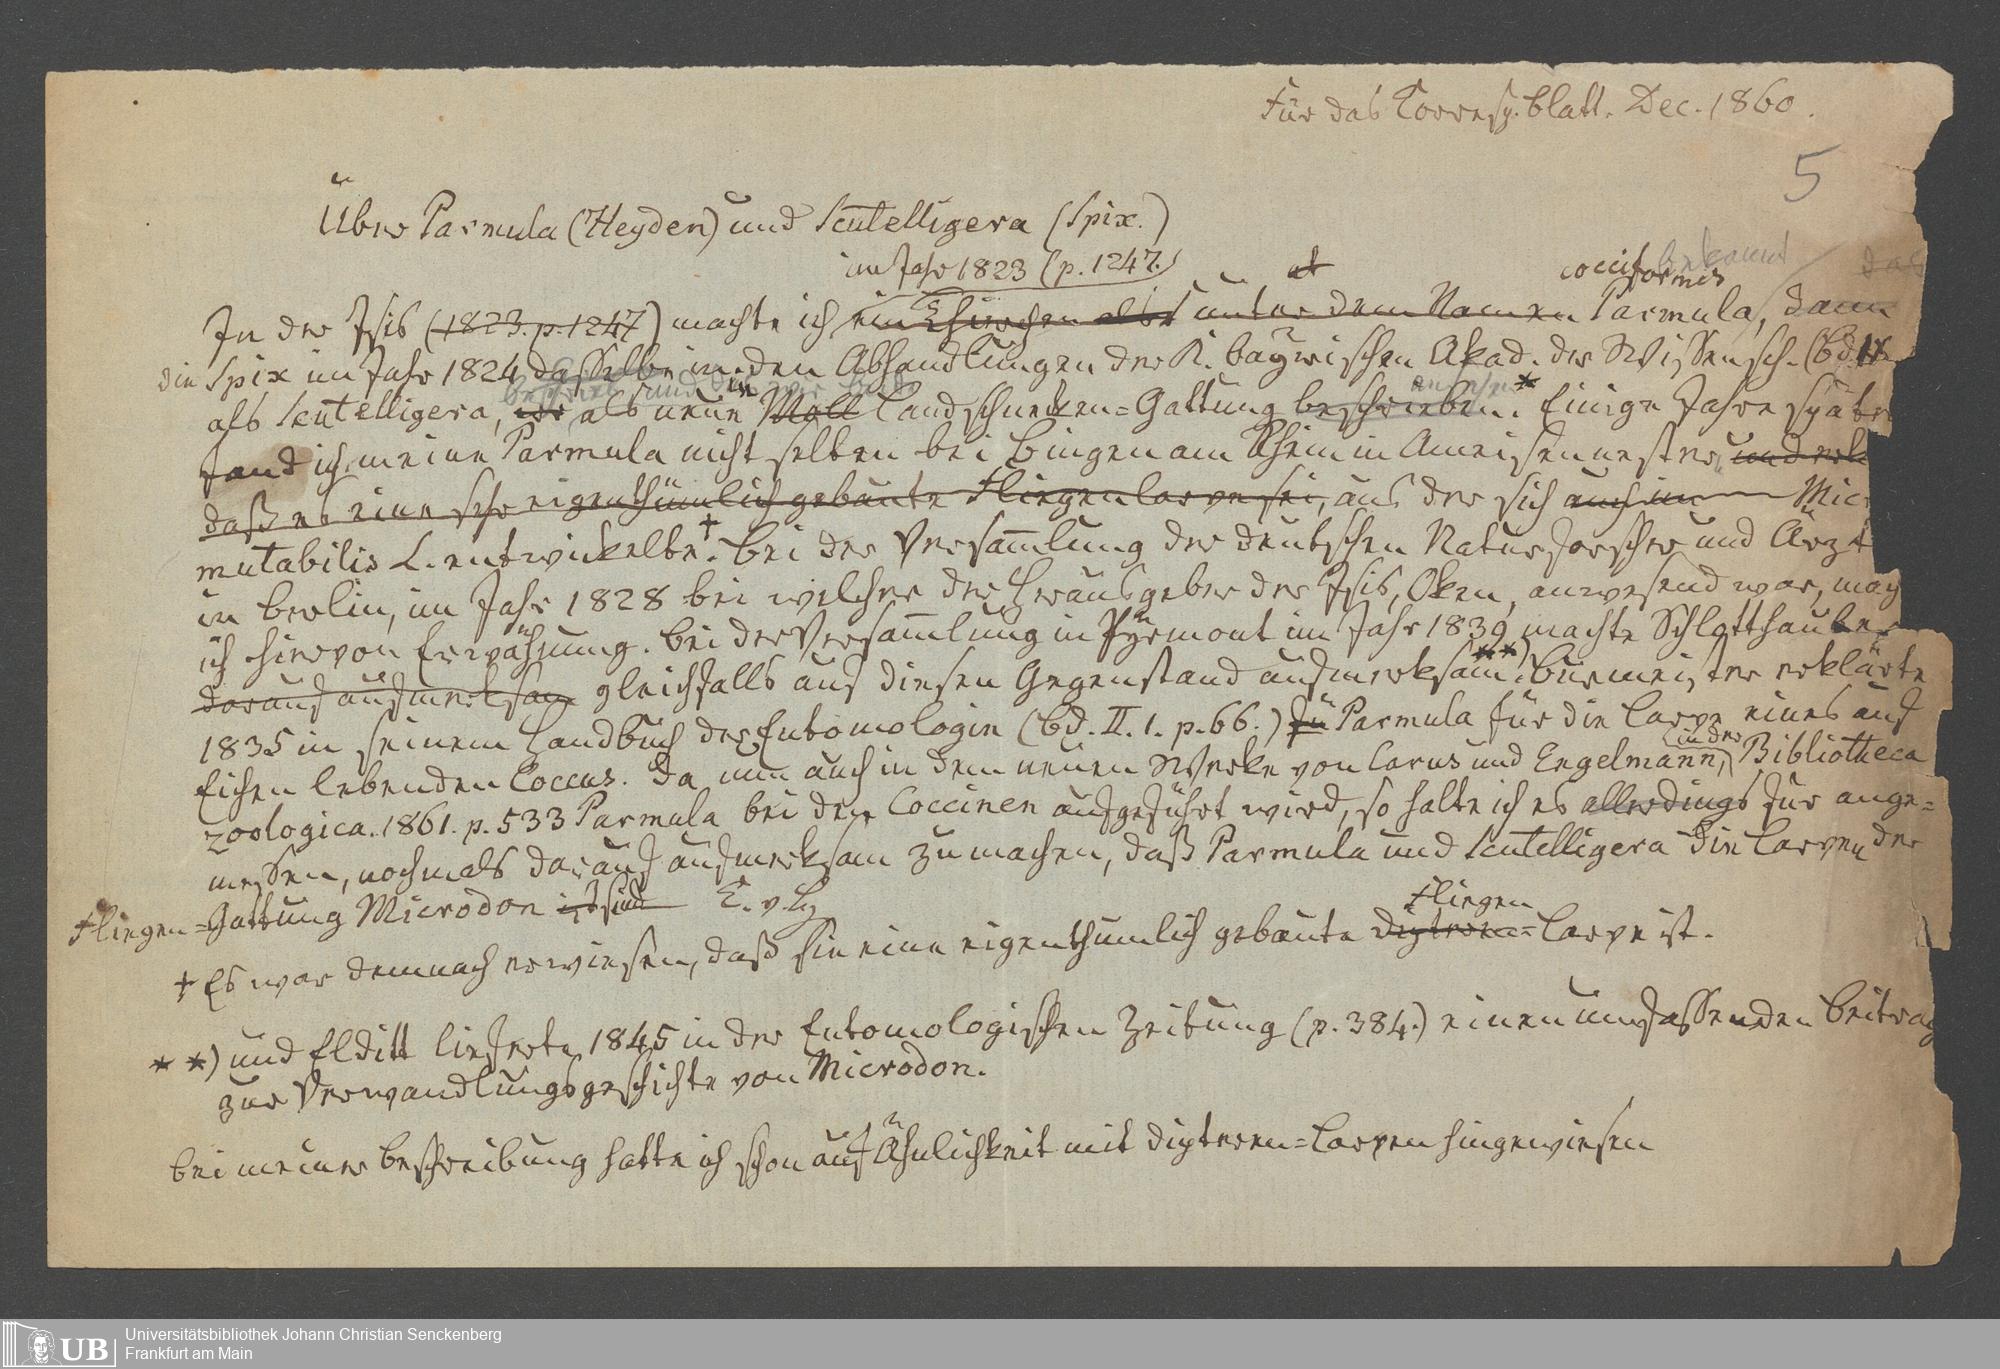 Für das Corresp. blatt. Dec. 1860.
5
Über Parmula (Heyden) und Scutelligera (Spix.)
im Jahr 1823 (p. 1247.)
cocciformis bekannt
In der Isis (1823. p. 1247) machte ich ein Thierchen unter dem Namen Parmula, dann
die Spix im Jahr 1824 dasselbe in den Abhandlungen der K. bayrischen Akad. der Wissensch. (Bd. IX
beschrieb und
als Scutelligera, als neue Moll Landschnecken=Gattung beschrieben.* Einige Jahre später
fand ich meine Parmula nicht selten bei Bingen am Rhein in Ameisennester, und erk
daß es eine sehr eigenthümlich gebaute Fliegenlarve sei, aus der sich auch im Mic
mutabilis L. entwickelte†. Bei der Versam̄lung der deutschen Naturforscher und Ärzt
in Berlin, im Jahr 1828 bei welcher der Herausgeber der Isis, Oken, anwesend war, mag
ich hiervon Erwähnung. Bei der Versam̄lung in Pÿrmont im Jahr 1839 machte Schlotthauber
darauf aufmerksam gleichfalls auf diesen Gegenstand aufmerksam. **) Burmeister erklärte
1835 in seinem Handbuch der Entomologie (Bd. II. 1. p. 66.) Parmula für die Larve eines auf
Eichen lebenden Coccus. Da nun auch in dem neuen Werke von Carus und Engelmann, in der Bibliotheca
zoologica. 1861. p. 533 Parmula bei den Coccinen aufgeführt wird, so halte ich es allerdings für ange=
messen, nochmals darauf aufmerksam zu machen, daß Parmula und Scutelligera die Larven der
Fliegen=Gattung Microdon ist sind C. v. Hy
Fliegen
† Es war demnach erwiesen, daß sie eine eigenthümlich gebaute Diptern=Larve ist.
**) und Elditt lieferte 1845 in der Entomologischen Zeitung (p. 384.) einen umfassenden Beitrag
zur Verwandlungsgeschichte von Microdon.
Bei meiner Beschreibung hatte ich schon auf Ähnlichkeit mit Dipteren=Larven hingewiesen
UB
Universitätsbibliothek Johann Christian Senckenberg
Frankfurt am Main